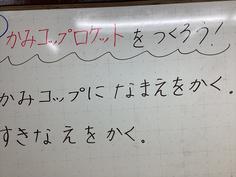 かみコップロケットをつくろう!
かみコップになまえをかく。
すきなえをかく。